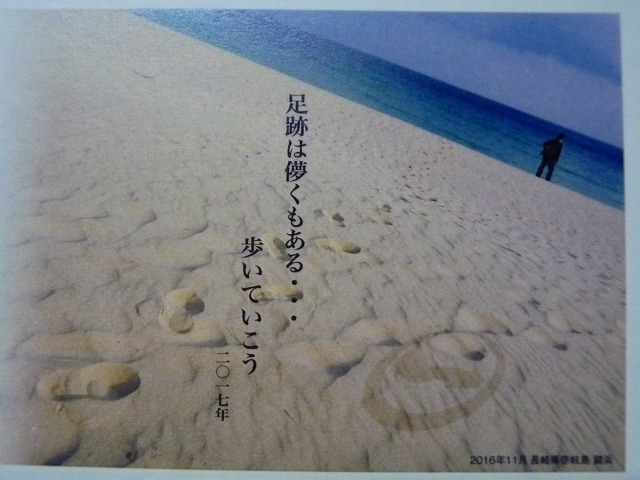 足跡は儚くもある・・・
歩いていこう
二〇一七年
2016年11月 長崎県壱岐島 錦浜